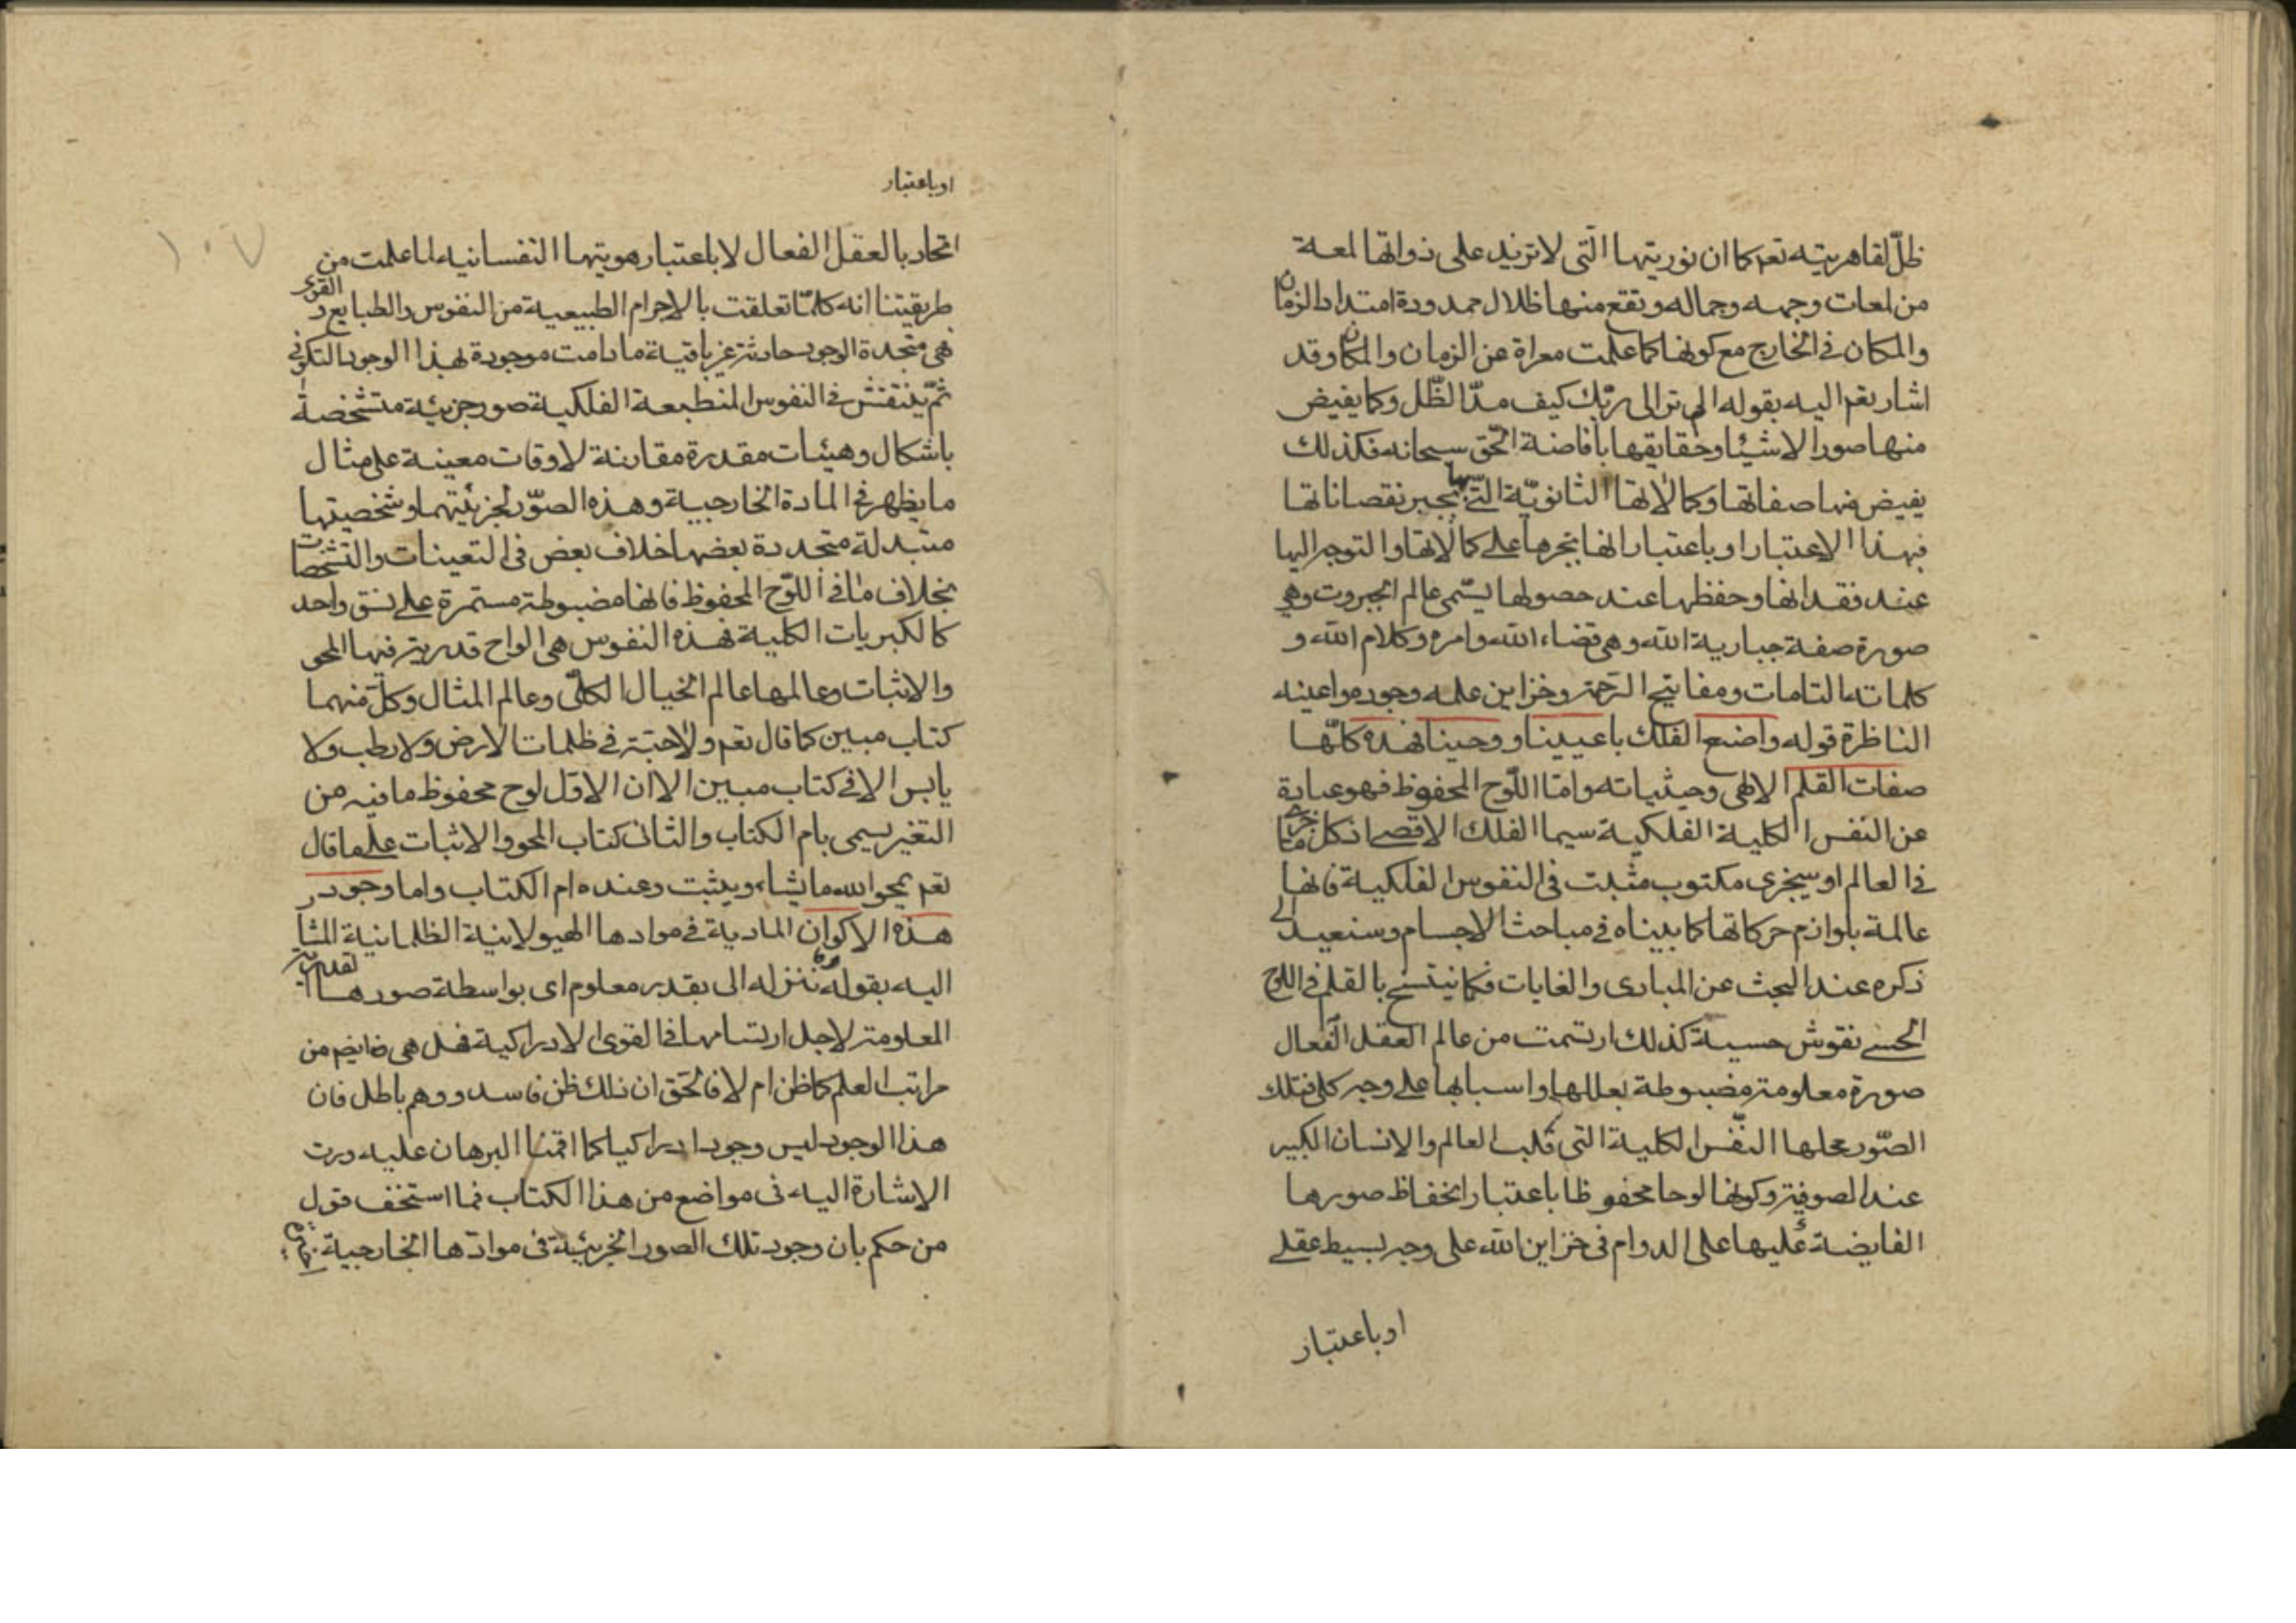 ظلّ لقاهريته تعم كما ان نوريتها الّتى لا تزيد على ذواتها لمعة
من لمعات وجهه وجماله وتقع منها ظلال ممدودة امتداد الزمان
والمكان فى الخارج مع كونها كما علمت معراة عن الزمان والمكان وقد
اشار تعم اليه بقوله الم تر الى ربّك كيف مدّ الظّل وكما يفيض
منها صور الاشيئا وحقايقها بافاضة الحّق سبحانه فكذلك
يفيض منها صفاتها وكمالاتها الثانويّة الّتى بها يجبر نقصاناتها
فبهذا الاعتبار او باعتبار انها يجبرها على كمالاتها والتوجه اليها
عند فقدانها وحفظها عند حصولها يسّمى عالم الجبروت وهى
صورة صفة جبارية الله وهى قضاء الله وامره وكلام الله و
كلماته التامات ومفاتيح الرّحمة وخزاين علمه وجوده واعينه
الناظرة قوله واصنع الفلك باعيينا ووحينا فهذه كلّها
صفات القلم الالهى وحيثياته وامّا اللّوح المحفوظ فهو عبارة
عن النفس الكلية الفلكية سيما الفلك الاقصى اذ كل ما جرى
فى العالم او سيجرى مكتوب مثبت فى النفوس الفلكية فانها
عالمة بلوازم حركاتها كما بيناه فى مباحث الاجسام وسنعيد الى
ذكره عند البحث عن المبادى والغايات فكما ينتسخ بالقلم فى اللوح
الحسى نقوش حسية كذلك ارتسمت من عالم العقل الفّعال
صورة معلومة مضبوطة بعللها واسبابها على وجه كلى فتلك
الصّور محلها النفّس الكلية التى قلب العالم والانسان الكبير
عند الصوفية وكونها لوحا محفوظا باعتبار انحفاظ صورها
الفايضة عليها على الدوام فى خزاين الله على وجه بسيط عقلى
او باعتبار
او باعتبار
اتحاد بالعقل الفعال لا باعتبار هويتها النفسانيه لما علمت من
طريقيتنا انه كلمّا تعلقت بالاجرام الطبيعية من النفوس والطبايع و القوى
فهى متجددة الوجود حادثة غير باقية ما دامت موجودة لهذا الوجود التكونى
ثمّ ينتقش فى النفوس المنطبعة الفلكية صور جزئية متشخصة
باشكال وهيئات مقدرة مقارنة لاوقات معينة على مثال
ما يظهر فى المادة الخارجية وهذه الصّور لجزئيتهما وشخصيتها
متبدلة متجددة بعضها خلاف بعض فى التعينات والتشخصات
بخلاف ما فى اللّوح المحفوظ فانها مضبوطة مستمرة على نسق واحد
كالكبريات الكلية فهذه النفوس هى الواح قدرية فيها المحو
والاثبات وعالمها عالم الخيال الكلّى وعالم المثال وكلّ منهما
كتاب مبين كما قال تعم ولاحبّة فى ظلمات الارض ولا رطب ولا
يابس الا فى كتاب مبين الا ان الاوّل لوح محفوظ ما فيه من
التغير يسمى بام الكتاب والثانى كتاب المحو والاثبات على ما قال
تعم يمحو الله ما يشاء ويثبت وعنده ام الكتاب واما وجود
هذه الاكوان المادية فى موادها الهيولانية الظلمانية المشار
اليه بقوله وما ننزله الى بقدر معلوم اى بواسطة صورها القدرية
المعلومة لاجل ارتسامها فى القوى الادراكية فهل هى ضايهم من
مراتب العلم كما ظن ام لا فالحّق ان ذلك ظن فاسد ووهم باطل فان
هذا الوجود ليس وجودا ادراكيا كما اقمنا البرهان عليه ومرت
الاشارة اليه فى مواضع من هذا الكتاب فما استخف قول
من حكم بان وجود تلك الصور الجزئية فى موادّها الخارجية
١٠٧